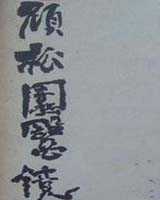 顾松園醫鏡